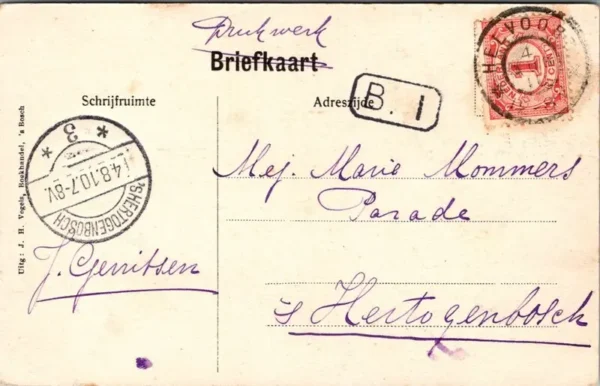 Drukwerk
Briefkaart
Schrijfruimte
Adreszijde
B. 1
HELVOOR
1
Mej. Marie Mommers
Parade
's Hertogenbosch
J. Gerritsen
* 3 *
14.8.10.7-8V
'SHERTOGENBOSCH
Uitg: J. H. Vogels, Boekhandel, 's Bosch